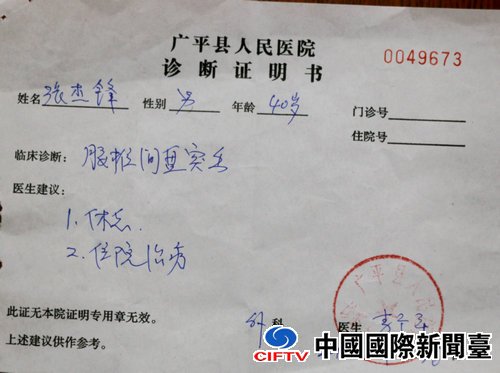 广平县人民医院
诊断证明书
0049673
姓名 张杰锋 性别 男 年龄 40岁 门诊号
住院号
临床诊断: 腰椎间盘突出
医生建议:
1. 休息.
2. 住院治疗
此证无本院证明专用章无效。
外 科 医生
上述建议供作参考。
广平县人民
CIFTV 中國國際新聞臺